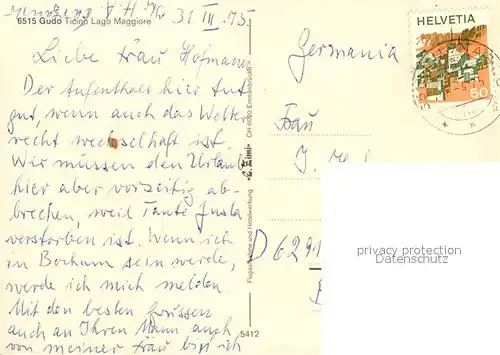 6515 Gudo Ticino Lago Maggiore
31. III. 75
HELVETIA
50
Liebe Frau Hofmann
Der Aufenthalt hier tut
gut, wenn auch das Wetter
recht wechselhaft ist.
Wir müssen den Urlaub
hier aber vorzeitig ab-
brechen, weil Tante Gusta
verstorben ist. Wenn ich
in Bochum sein werde,
werde ich mich melden.
Mit den besten Grüssen
auch an Ihren Mann auch
von meiner Frau bin ich
Flugaufnahme und Hotelwerbung
CH 6020 Emmenbrücke
5412
Germania
Frau
J.
D 6291
privacy protection
DATENSCHUTZ